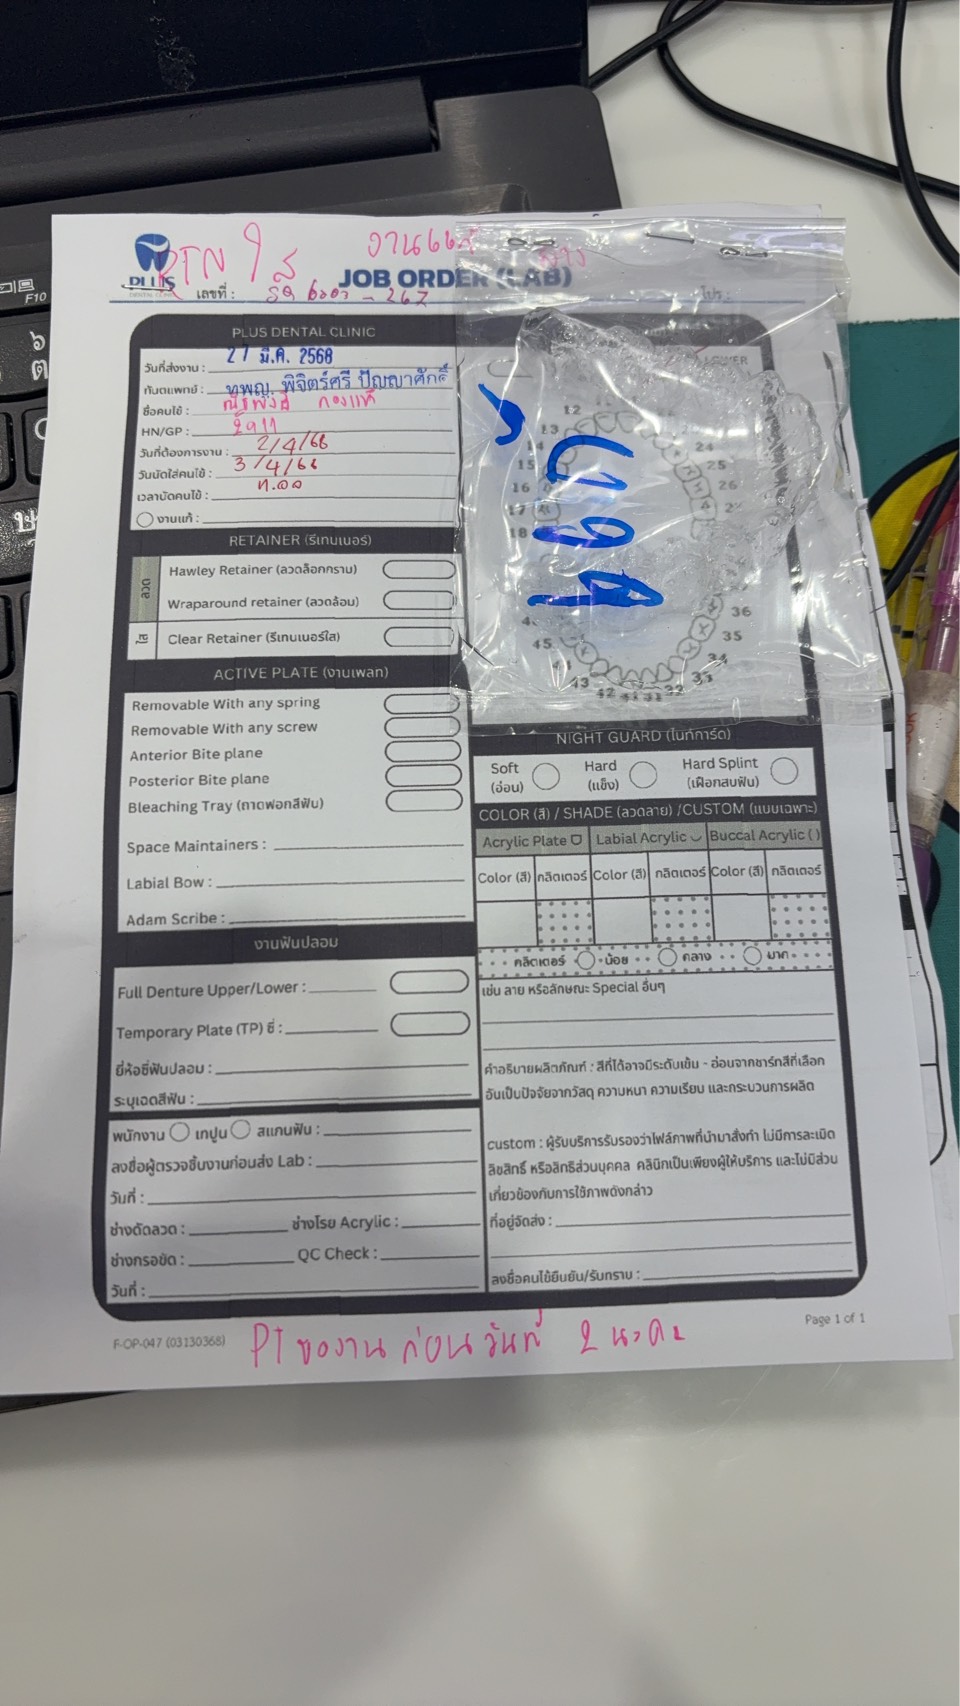 RTN ใส
PLUS
DENTAL CLINIC
JOB ORDER (LAB)
เลขที่ :
โปร :
PLUS DENTAL CLINIC
วันที่ส่งงาน : 27 มี.ค. 2568
ทันตแพทย์ : ทพญ. พิจิตร์ศรี ปัญญาศักดิ์
ชื่อคนไข้ :
HN/GP : 2911
วันที่ต้องการงาน : 2/4/68
วันนัดใส่คนไข้ : 3/4/68
เวลานัดคนไข้ :
งานแก้ :
RETAINER (รีเทนเนอร์)
ลวด
Hawley Retainer (ลวดล็อกกราม)
Wraparound retainer (ลวดล้อม)
ใส
Clear Retainer (รีเทนเนอร์ใส)
ACTIVE PLATE (งานเพลท)
Removable With any spring
Removable With any screw
Anterior Bite plane
Posterior Bite plane
Bleaching Tray (ถาดฟอกสีฟัน)
Space Maintainers :
Labial Bow :
Adam Scribe :
งานฟันปลอม
Full Denture Upper/Lower :
Temporary Plate (TP) ซี่ :
ยี่ห้อซี่ฟันปลอม :
ระบุเฉดสีฟัน :
พนักงาน เทปูน สแกนฟัน :
ลงชื่อผู้ตรวจชิ้นงานก่อนส่ง Lab :
วันที่ :
ช่างดัดลวด : ช่างโรย Acrylic :
ช่างกรอขัด : QC Check :
วันที่ :
LOWER
12
13
14
15
16
17
18
24
25
26
36
35
34
33
32
31
41
42
43
45
NIGHT GUARD (ไนท์การ์ด)
Soft (อ่อน)
Hard (แข็ง)
Hard Splint (เฝือกสบฟัน)
COLOR (สี) / SHADE (ลวดลาย) /CUSTOM (แบบเฉพาะ)
Acrylic Plate Labial Acrylic Buccal Acrylic ( )
Color (สี) กลิตเตอร์ Color (สี) กลิตเตอร์ Color (สี) กลิตเตอร์
กลิตเตอร์ น้อย กลาง มาก
เช่น ลาย หรือลักษณะ Special อื่นๆ
คำอธิบายผลิตภัณฑ์ : สีที่ได้อาจมีระดับเข้ม - อ่อนจากชาร์ทสีที่เลือก
อันเป็นปัจจัยจากวัสดุ ความหนา ความเรียบ และกระบวนการผลิต
custom : ผู้รับบริการรับรองว่าไฟล์ภาพที่นำมาสั่งทำ ไม่มีการละเมิด
ลิขสิทธิ์ หรือสิทธิส่วนบุคคล คลินิกเป็นเพียงผู้ให้บริการ และไม่มีส่วน
เกี่ยวข้องกับการใช้ภาพดังกล่าว
ที่อยู่จัดส่ง :
ลงชื่อคนไข้ยืนยัน/รับทราบ :
F-OP-047 (03130368)
Page 1 of 1
PT ของานก่อนวันที่ 2 นะคะ
F10